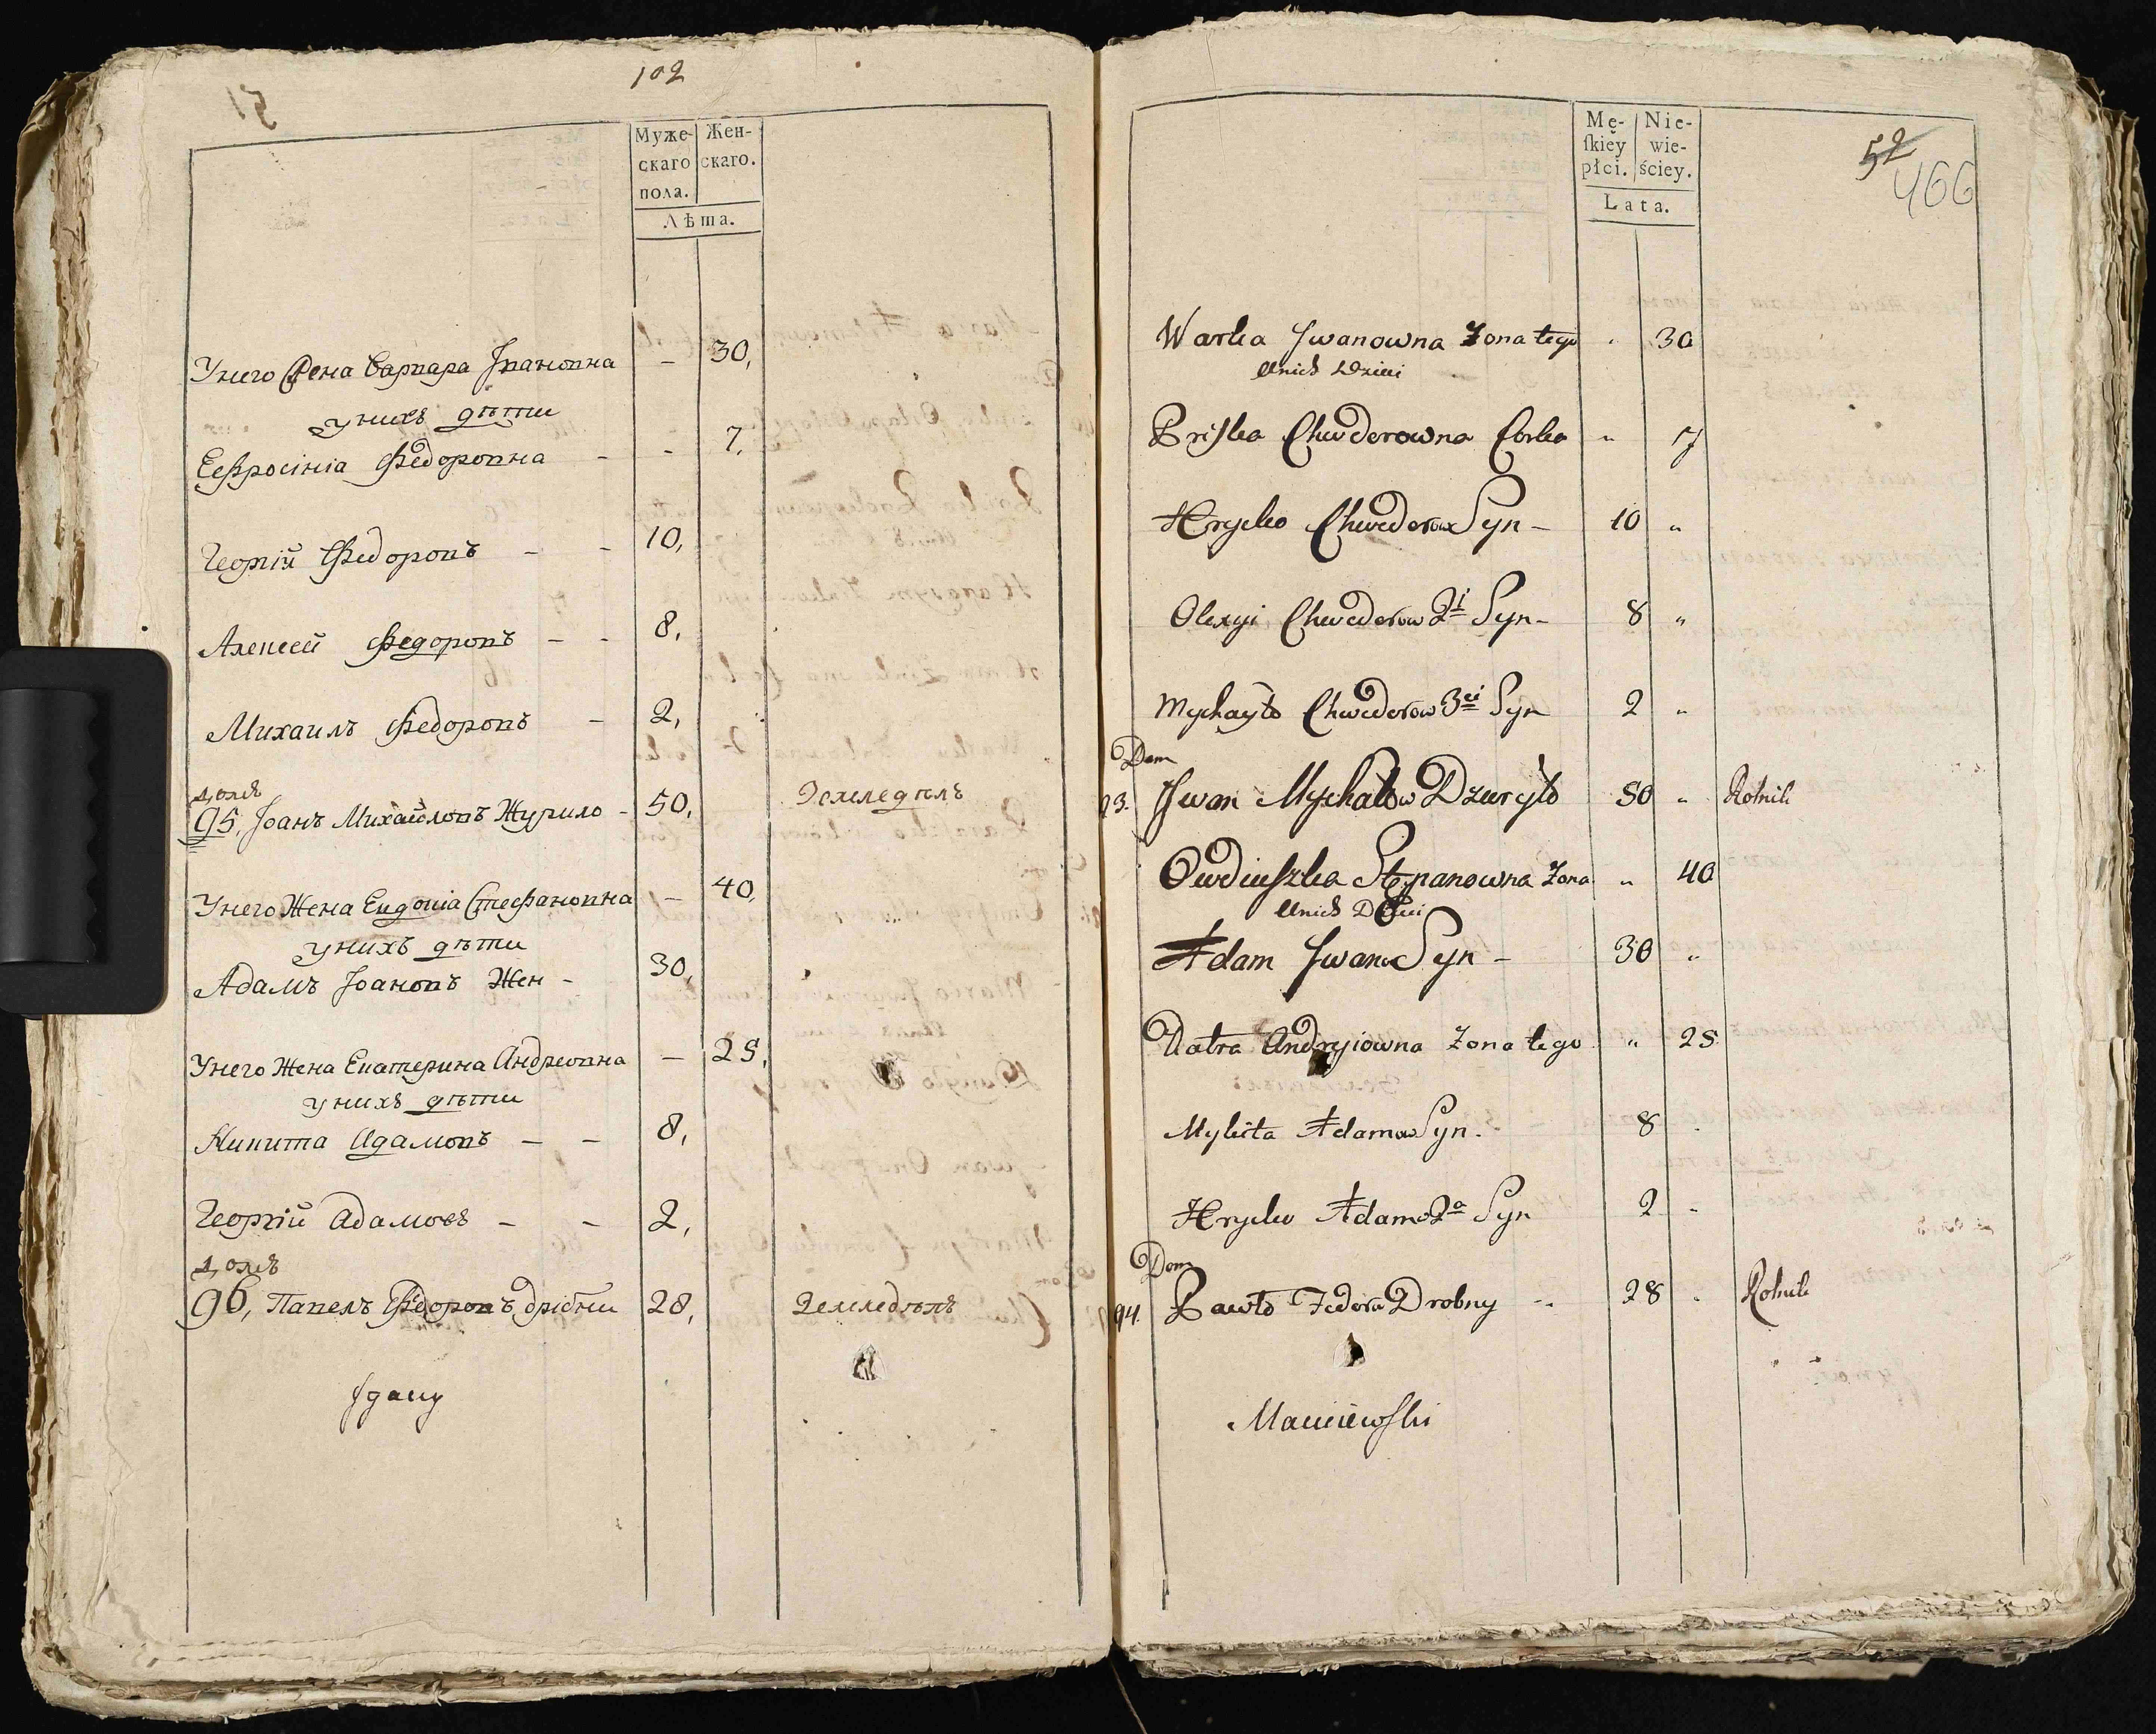 102
Муже- Жен-
скаго скаго.
пола.
Лѣта.
У него Жена Варвара Ивановна — 30,
у нихъ дѣти
Еѳросініа Федоровна - - 7,
Георгій Федоровъ - - 10,
Алексей Федоровъ - - 8,
Михаилъ Федоровъ - 2,
домъ
95, Іоанъ Михайловъ Журило - 50, Земледѣлъ
У него Жена Евдокіа Стефановна — 40,
у нихъ дѣти
Адамъ Іоановъ Жен - 30,
У него Жена Екатерина Андреовна — 25,
у нихъ дѣти
Никита Адамовъ — — 8,
Георгій Адамовъ — - 2,
домъ
96, Павелъ Федоровъ Дрібни 28, Земледѣлъ
52
466
Mę- Nie-
ſkiey wie-
płci. ściey.
Lata.
Warka Iwanowna Zona tego 30
U nich Dzieci
Priſka Chwedorowna Corka " 7
Hryćko Chwedorow Syn - 10 "
Olexyi Chwedorow 2i Syn - 8 "
Mychayło Chwedorow 3ci Syn 2 "
Dom
93. Iwan Mychałow Dzuryło 50 " Rolnik
Owdiuſzka Stepanowna Zona " 40
U nich Dzieci
Adam Iwanow Syn - 30 "
Katra Andryiowna Zona tego " 25
Mykita Adamow Syn. 8
Hryćko Adamow 2o Syn 2 -
Dom
94. Pawło Fedorow Drobny 28 Rolnik
Maciiewſki